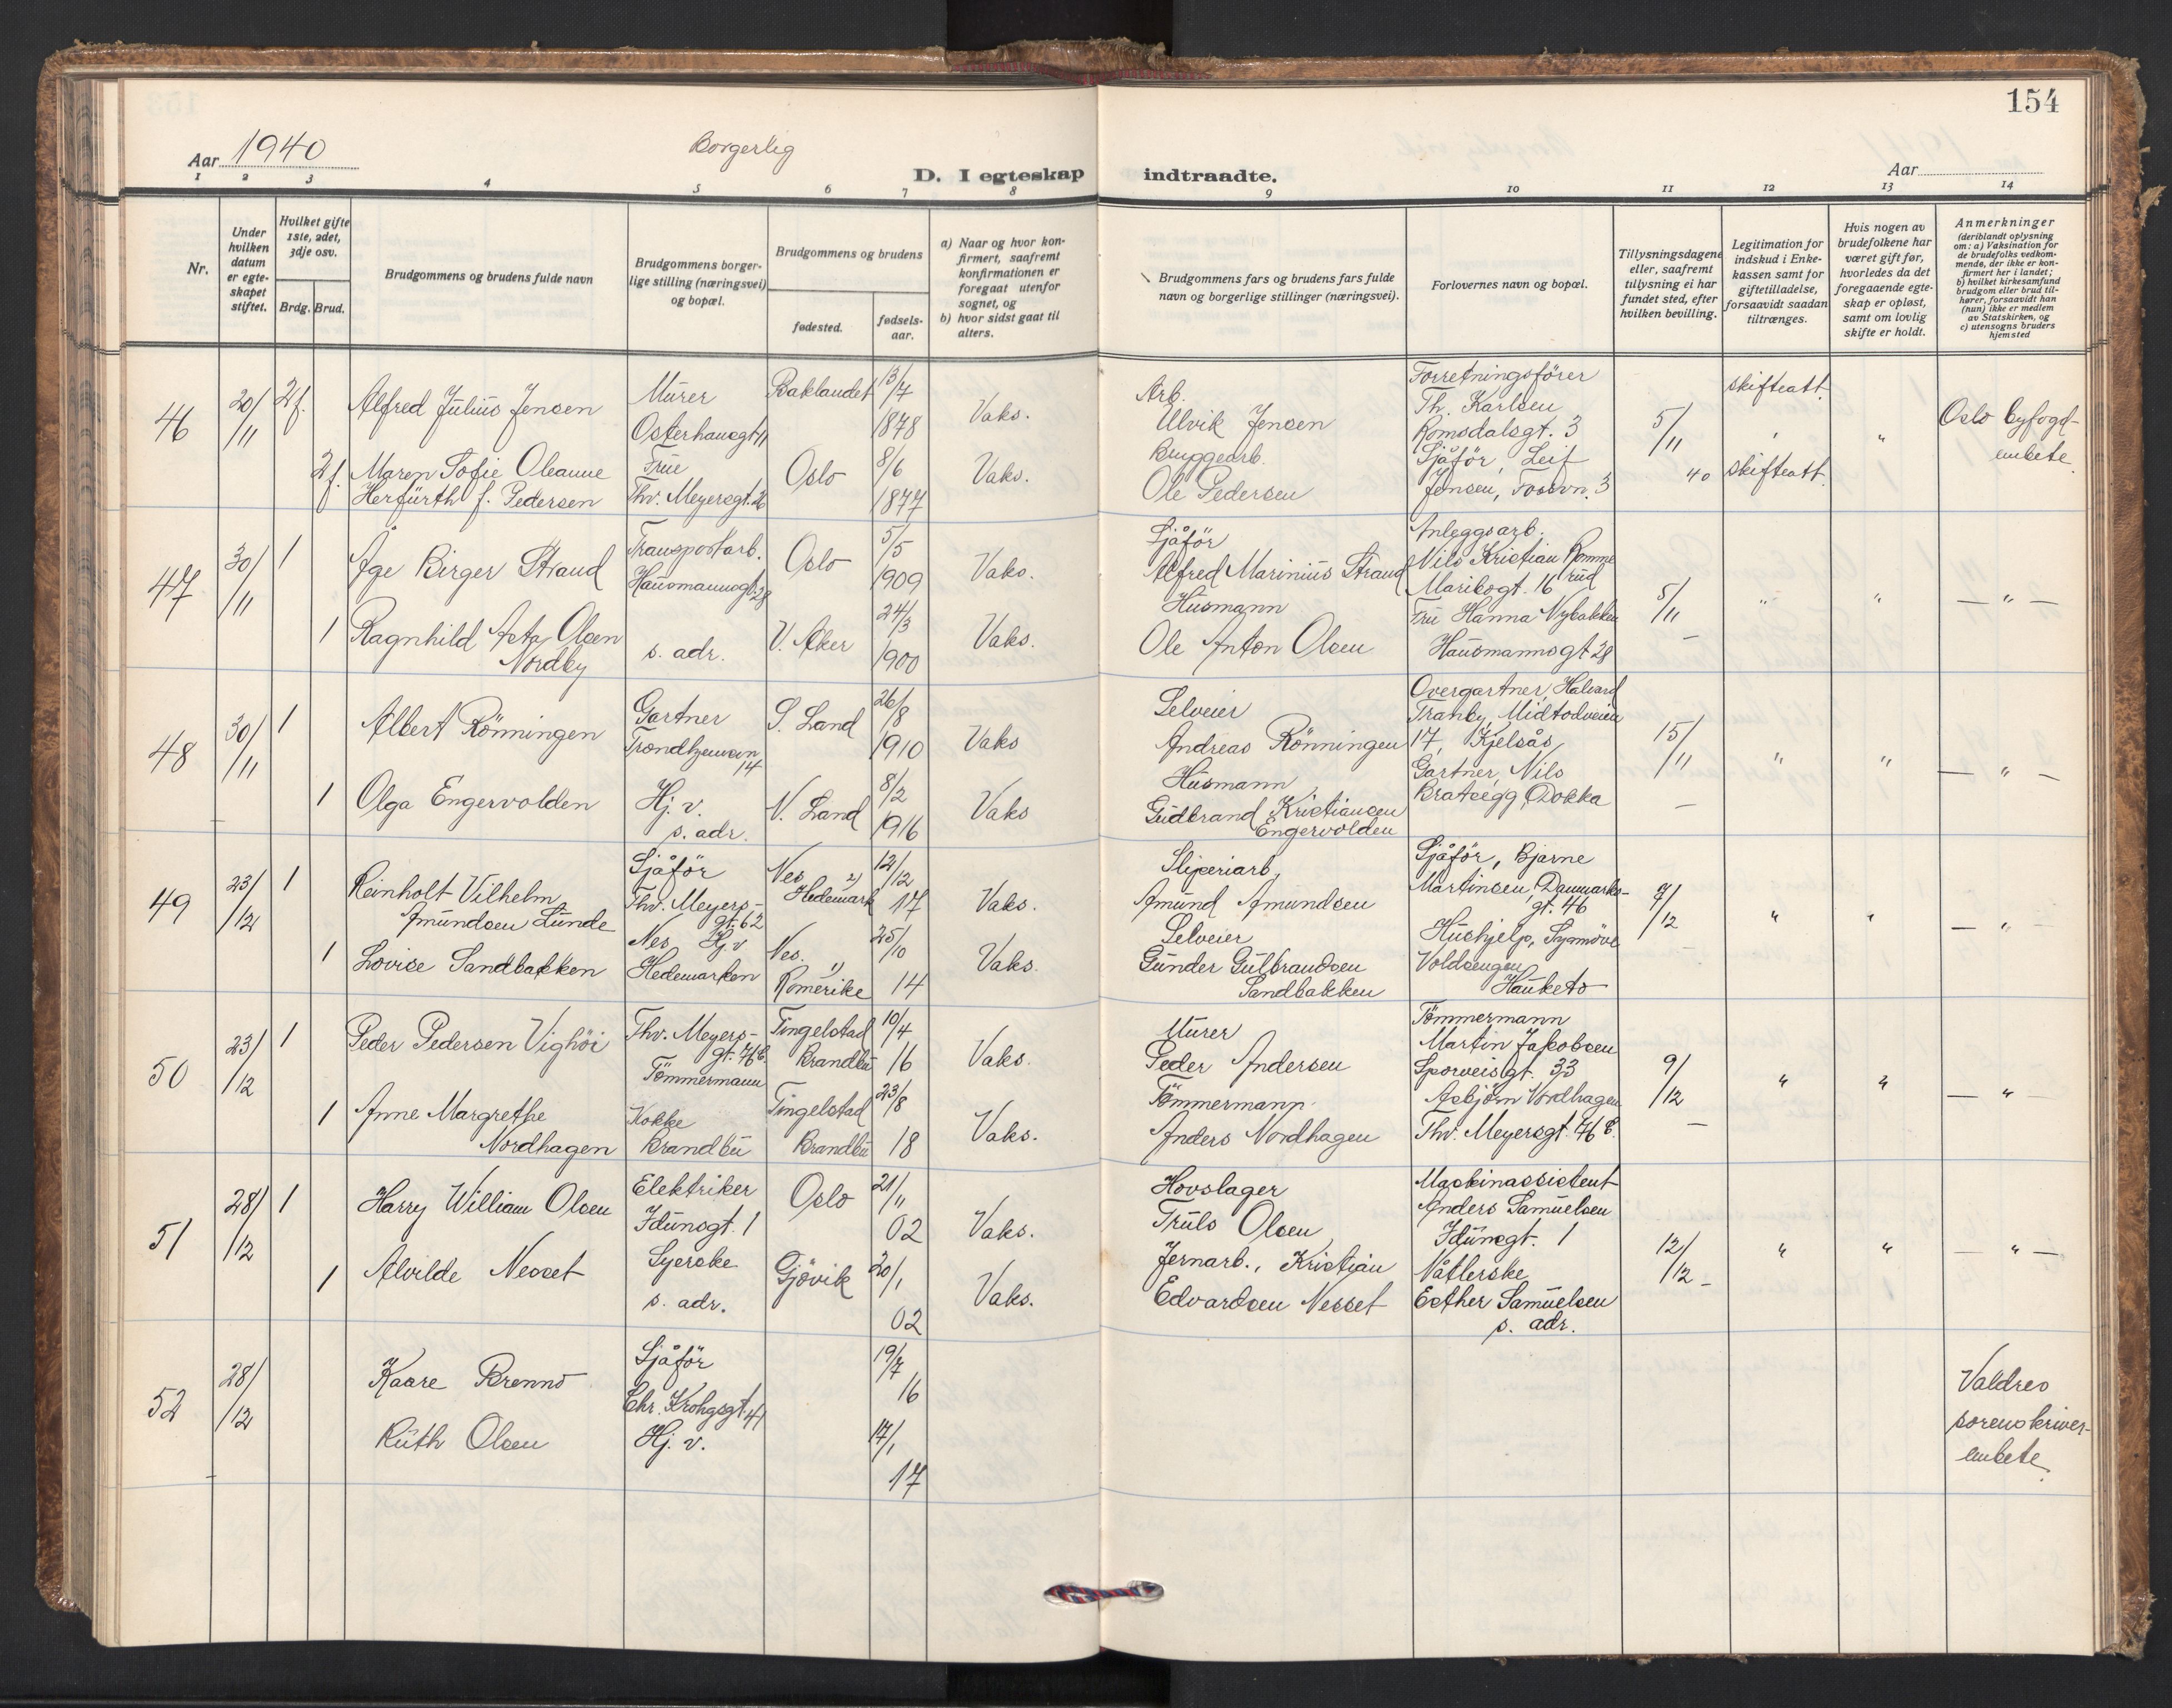 154
Aar 1940
Borgerlig
D. I egteskap indtraadte.
Aar
1 2 3 4 5 6 7 8 9 10 11 12 13 14
Nr.
Under hvilken datum er egteskapet stiftet.
Hvilket gifte 1ste, 2det, 3dje osv.
Brdg. Brud.
Brudgommens og brudens fulde navn
Brudgommens borgerlige stilling (næringsvei) og bopæl.
Brudgommens og brudens
fødested.
fødselsaar.
a) Naar og hvor konfirmert, saafremt konfirmationen er foregaat utenfor sognet, og
b) hvor sidst gaat til alters.
Brudgommens fars og brudens fars fulde navn og borgerlige stillinger (næringsvei).
Forlovernes navn og bopæl.
Tillysningsdagene eller, saafremt tillysning ei har fundet sted, efter hvilken bevilling.
Legitimation for indskud i Enkekassen samt for giftetilladelse, forsaavidt saadan tiltrænges.
Hvis nogen av brudefolkene har været gift før, hvorledes da det foregaaende egteskap er opløst, samt om lovlig skifte er holdt.
Anmerkninger
(deriblandt oplysning om: a) Vaksination for de brudefolks vedkommende, der ikke er konfirmert her i landet;
b) hvilket kirkesamfund brudgom eller brud tilhører, forsaavidt han (hun) ikke er medlem av Statskirken, og
c) utensogns bruders hjemsted
46
20/11
2 f.
Alfred Julius Jensen
Murer
Osterhausgt 11
Baklandet
13/7
1878
Vaks.
Arb.
Ulvik Jensen
Forretningsförer
Th. Karlsen
Romsdalsgt. 3
5/11
40
skifteatt.
"
Oslo byfogd-
embete
2 f.
Maren Sofie Oleanne
Herfürth f. Pedersen
Frue
Thv. Meyersgt. 26
Oslo
8/6
1877
Vaks.
Bryggearb.
Ole Pedersen
Sjåför, Leif
Jensen, Fossvn. 3
skifteatt.
47
30/11
1
Åge Birger Strand
Transportarb.
Hausmannsgt. 28
Oslo
5/5
1909
Vaks.
Sjåför
Alfred Marinius Strand
Anleggsarb.
Nils Kristian Romme
rud
Maribogt. 16
5/11
"
"
— " —
1
Ragnhild Asta Olsen
Nordby
s. adr.
V. Aker
24/3
1900
Vaks.
Husmann
Ole Anton Olsen
Fru Hanna Nybakken
Hausmannsgt 28
48
30/11
1
Albert Rönningen
Gartner
Trondhjemsvn
14
S. Land
26/8
1910
Vaks
Selveier
Andreas Rönningen
Overgartner, Halvard
Tranby, Midtodveien
17, Kjelsås
15/11
"
"
— " —
1
Olga Engervolden
Hj. v.
s. adr.
N. Land
8/2
1916
Vaks
Husmann
Gudbrand Kristiansen
Engervolden
Gartner, Nils
Bratsegg, Dokka
49
23/12
1
Reinholt Vilhelm
Amundsen Lunde
Sjåför
Thv. Meyers-
gt. 62
Nes 2)
Hedemark
12/12
17
Vaks.
Sliperiarb,
Amund Amundsen
Sjåför, Bjarne
Martinsen, Danmarks-
gt. 46
7/12
"
"
— " —
1
Lovise Sandbakken
Nes Hj. v
Hedemarken
Nes. 1)
Romerike
25/10
14
Vaks.
Selveier
Gunder Gulbrandsen
Sandbakken
Hushjelp, Synnöve
Voldsengen
Hauketo
50
23/12
1
Peder Pedersen Vighöi
Thv. Meyers-
gt. 76 B.
Tömmermann
Tingelstad
Brandbu
10/4
16
Vaks.
Murer
Peder Andersen
Tömmermann
Martin Jakobsen
Sporveisgt. 33
9/12
"
"
— " —
1
Anne Margrethe
Nordhagen
Kokke
Brandbu
Tingelstad
Brandbu
23/8
18
Vaks.
Tömmermann
Anders Nordhagen
Asbjörn Nordhagen
Thv. Meyersgt. 76 B.
51
28/12
1
Harry William Olsen
Elektriker
Idunsgt. 1
Oslo
21/11
02
Vaks.
Hovslager
Truls Olsen
Maskinassistent
Anders Samuelsen
Idunsgt. 1
12/12
"
"
— " —
1
Alvilde Nesset
Syerske
s. adr.
Gjövik
20/1
02
Vaks.
Jernarb., Kristian
Edvardsen Nesset
Våtlerske
Esther Samuelsen
s. adr.
52
28/12
Kaare Brennd
Sjåför
Chr. Krohgsgt. 41
19/7
16
Valdres
sorenskriver-
embete
Ruth Olsen
Hj. v.
17/1
17